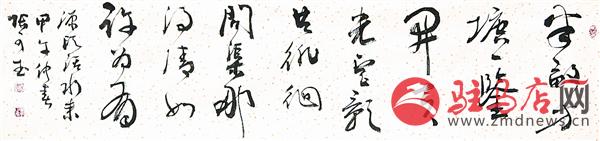 半畝方
塘一鑒
開天
光雲影
共徘徊
問渠那
得清如
許為有
源頭活水来
甲午仲春
驻马店网
www.zmdnews.cn